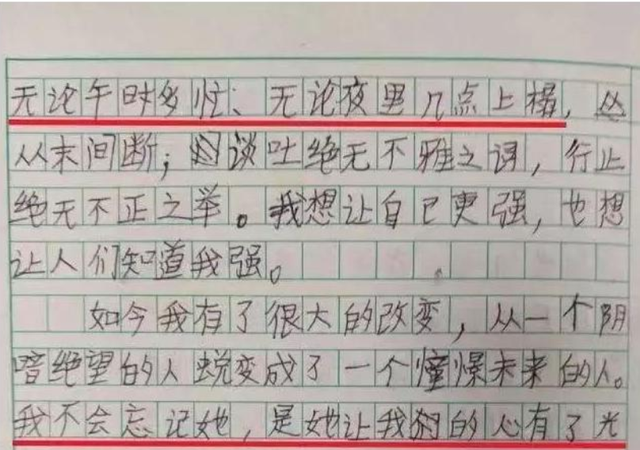 无论午时多忙、无论夜里几点上榻,
从末间断;谈吐绝无不雅之词,行止
绝无不正之举。我想让自己更强,也想
让人们知道我强。
如今我有了很大的改变,从一个阴
暗绝望的人蜕变成了一个憧憬未来的人。
我不会忘记她,是她让我的心有了光